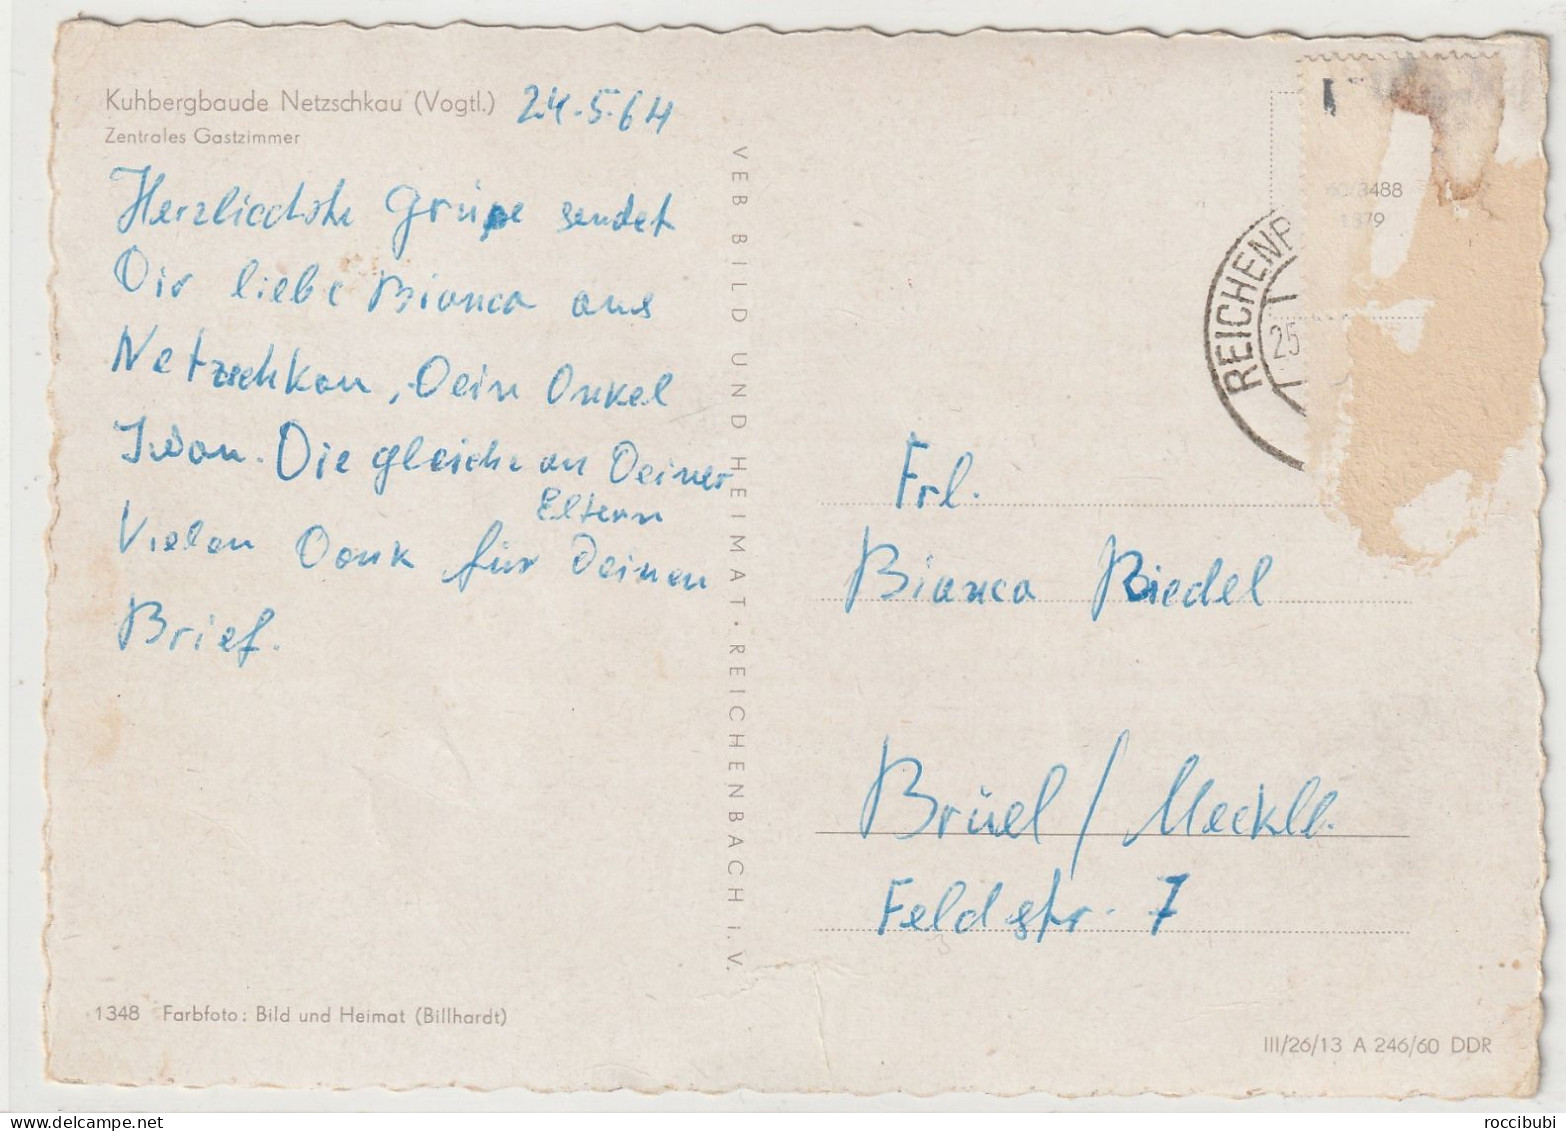 Kuhbergbaude Netzschkau (Vogtl.) 24.5.64
Zentrales Gastzimmer
Herzlichste Grüße sendet
Dir liebe Bianca aus
Netzschkau, Dein Onkel
Iwan. Die gleiche an Deiner
Eltern
Vielen Dank für Deinen
Brief.
1348 Farbfoto: Bild und Heimat (Billhardt)
VEB BILD UND HEIMAT · REICHENBACH i. V.
3488
REICHENB
25
Frl.
Bianca Riedel
Brüel / Meckll.
Feldstr. 7
III/26/13 A 246/60 DDR
roccibubi